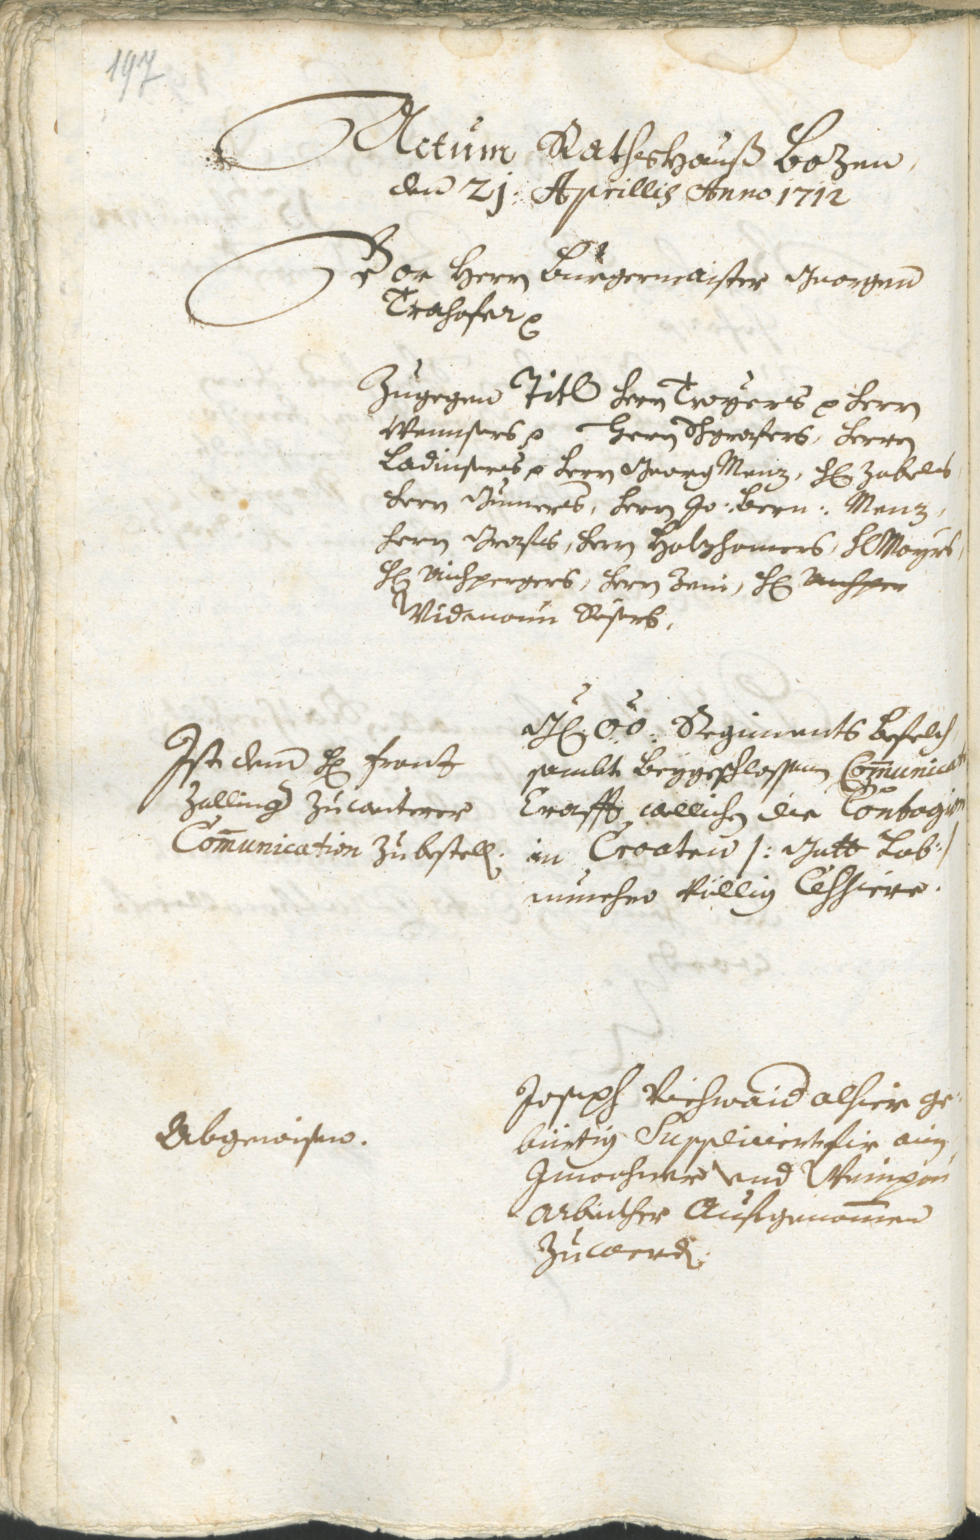 197
Actum Rathshauß Bozen,
den 21: Aprillis Anno 1712
Vor Herrn Burgermaister Georgen
Trahofer
Zugegen Titl Herrn Troyers Herrn
Herrn Herrn
Ladinsers Herrn Georg Menz, H: Zobeles
Herrn Gumers, Herrn Jo: Bern: Menz,
Herrn Herrn Holzhamers, H: Mayrs,
H: Aichpergers, Herrn Zeni, H: Aichper
Widmann
Ist dem H: Franz
Zallinger zu weiterer
Communication zubestell:
H: O: Ö: Regiments Befelch
sambt beygeschlossnen Communicat
Crafft wellichen die Contagion
in Croaten /: Gott Lob :/
nunmehro völlig Cessiere.
Abgewisen.
Joseph alhier ge-
bürtig Supplicirt für ain
Inwohner und
arbeither aufgenommen
zuwerd: